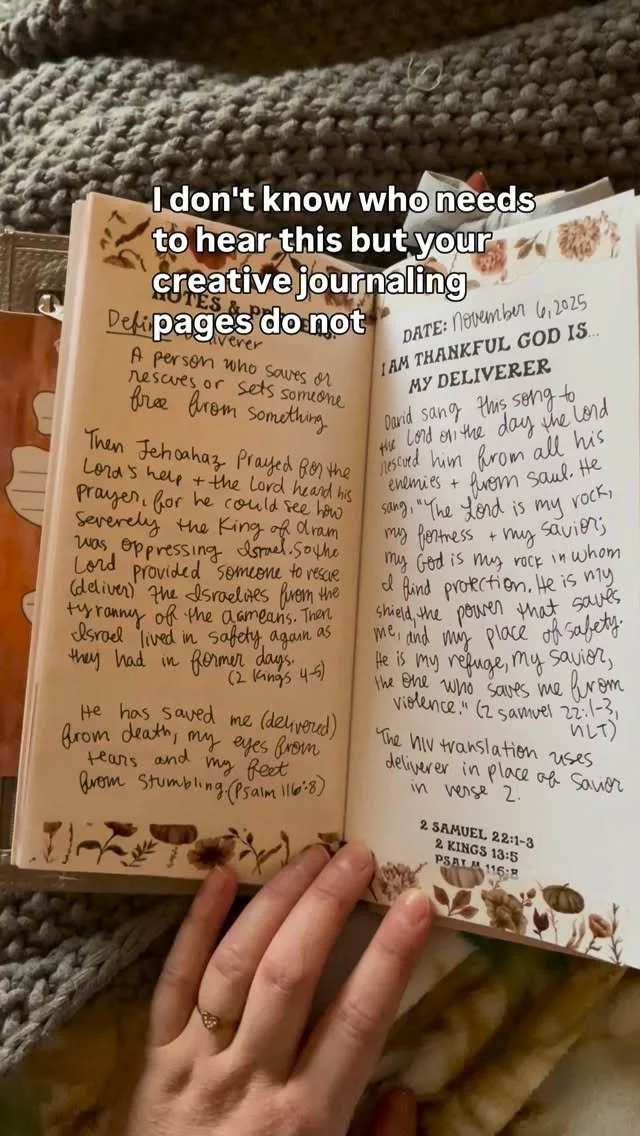 I don't know who needs
to hear this but your
creative journaling
pages do not
NOTES &
Define Deliverer
A person who saves or
rescues or sets someone
free from something
Then Jehoahaz prayed for the
Lord's help + the Lord heard his
prayer, for he could see how
severely the King of Aram
was oppressing Israel. So the
Lord provided someone to rescue
(deliver) the Israelites from the
tyranny of the Arameans. Then
Israel lived in safety again as
they had in former days.
(2 Kings 4-5)
He has saved me (delivered)
from death, my eyes from
tears and my feet
from stumbling. (Psalm 116:8)
DATE: November 6, 2025
I AM THANKFUL GOD IS...
MY DELIVERER
David sang this song to
the Lord on the day the Lord
rescued him from all his
enemies + from Saul. He
sang, "The Lord is my rock,
my fortress + my savior;
my God is my rock in whom
I find protection. He is my
shield, the power that saves
me, and my place of safety.
He is my refuge, my savior,
the one who saves me from
violence." (2 Samuel 22:1-3,
NLT)
The NIV translation uses
deliverer in place of Savior
in verse 2.
2 SAMUEL 22:1-3
2 KINGS 13:5
PSALM 116:8